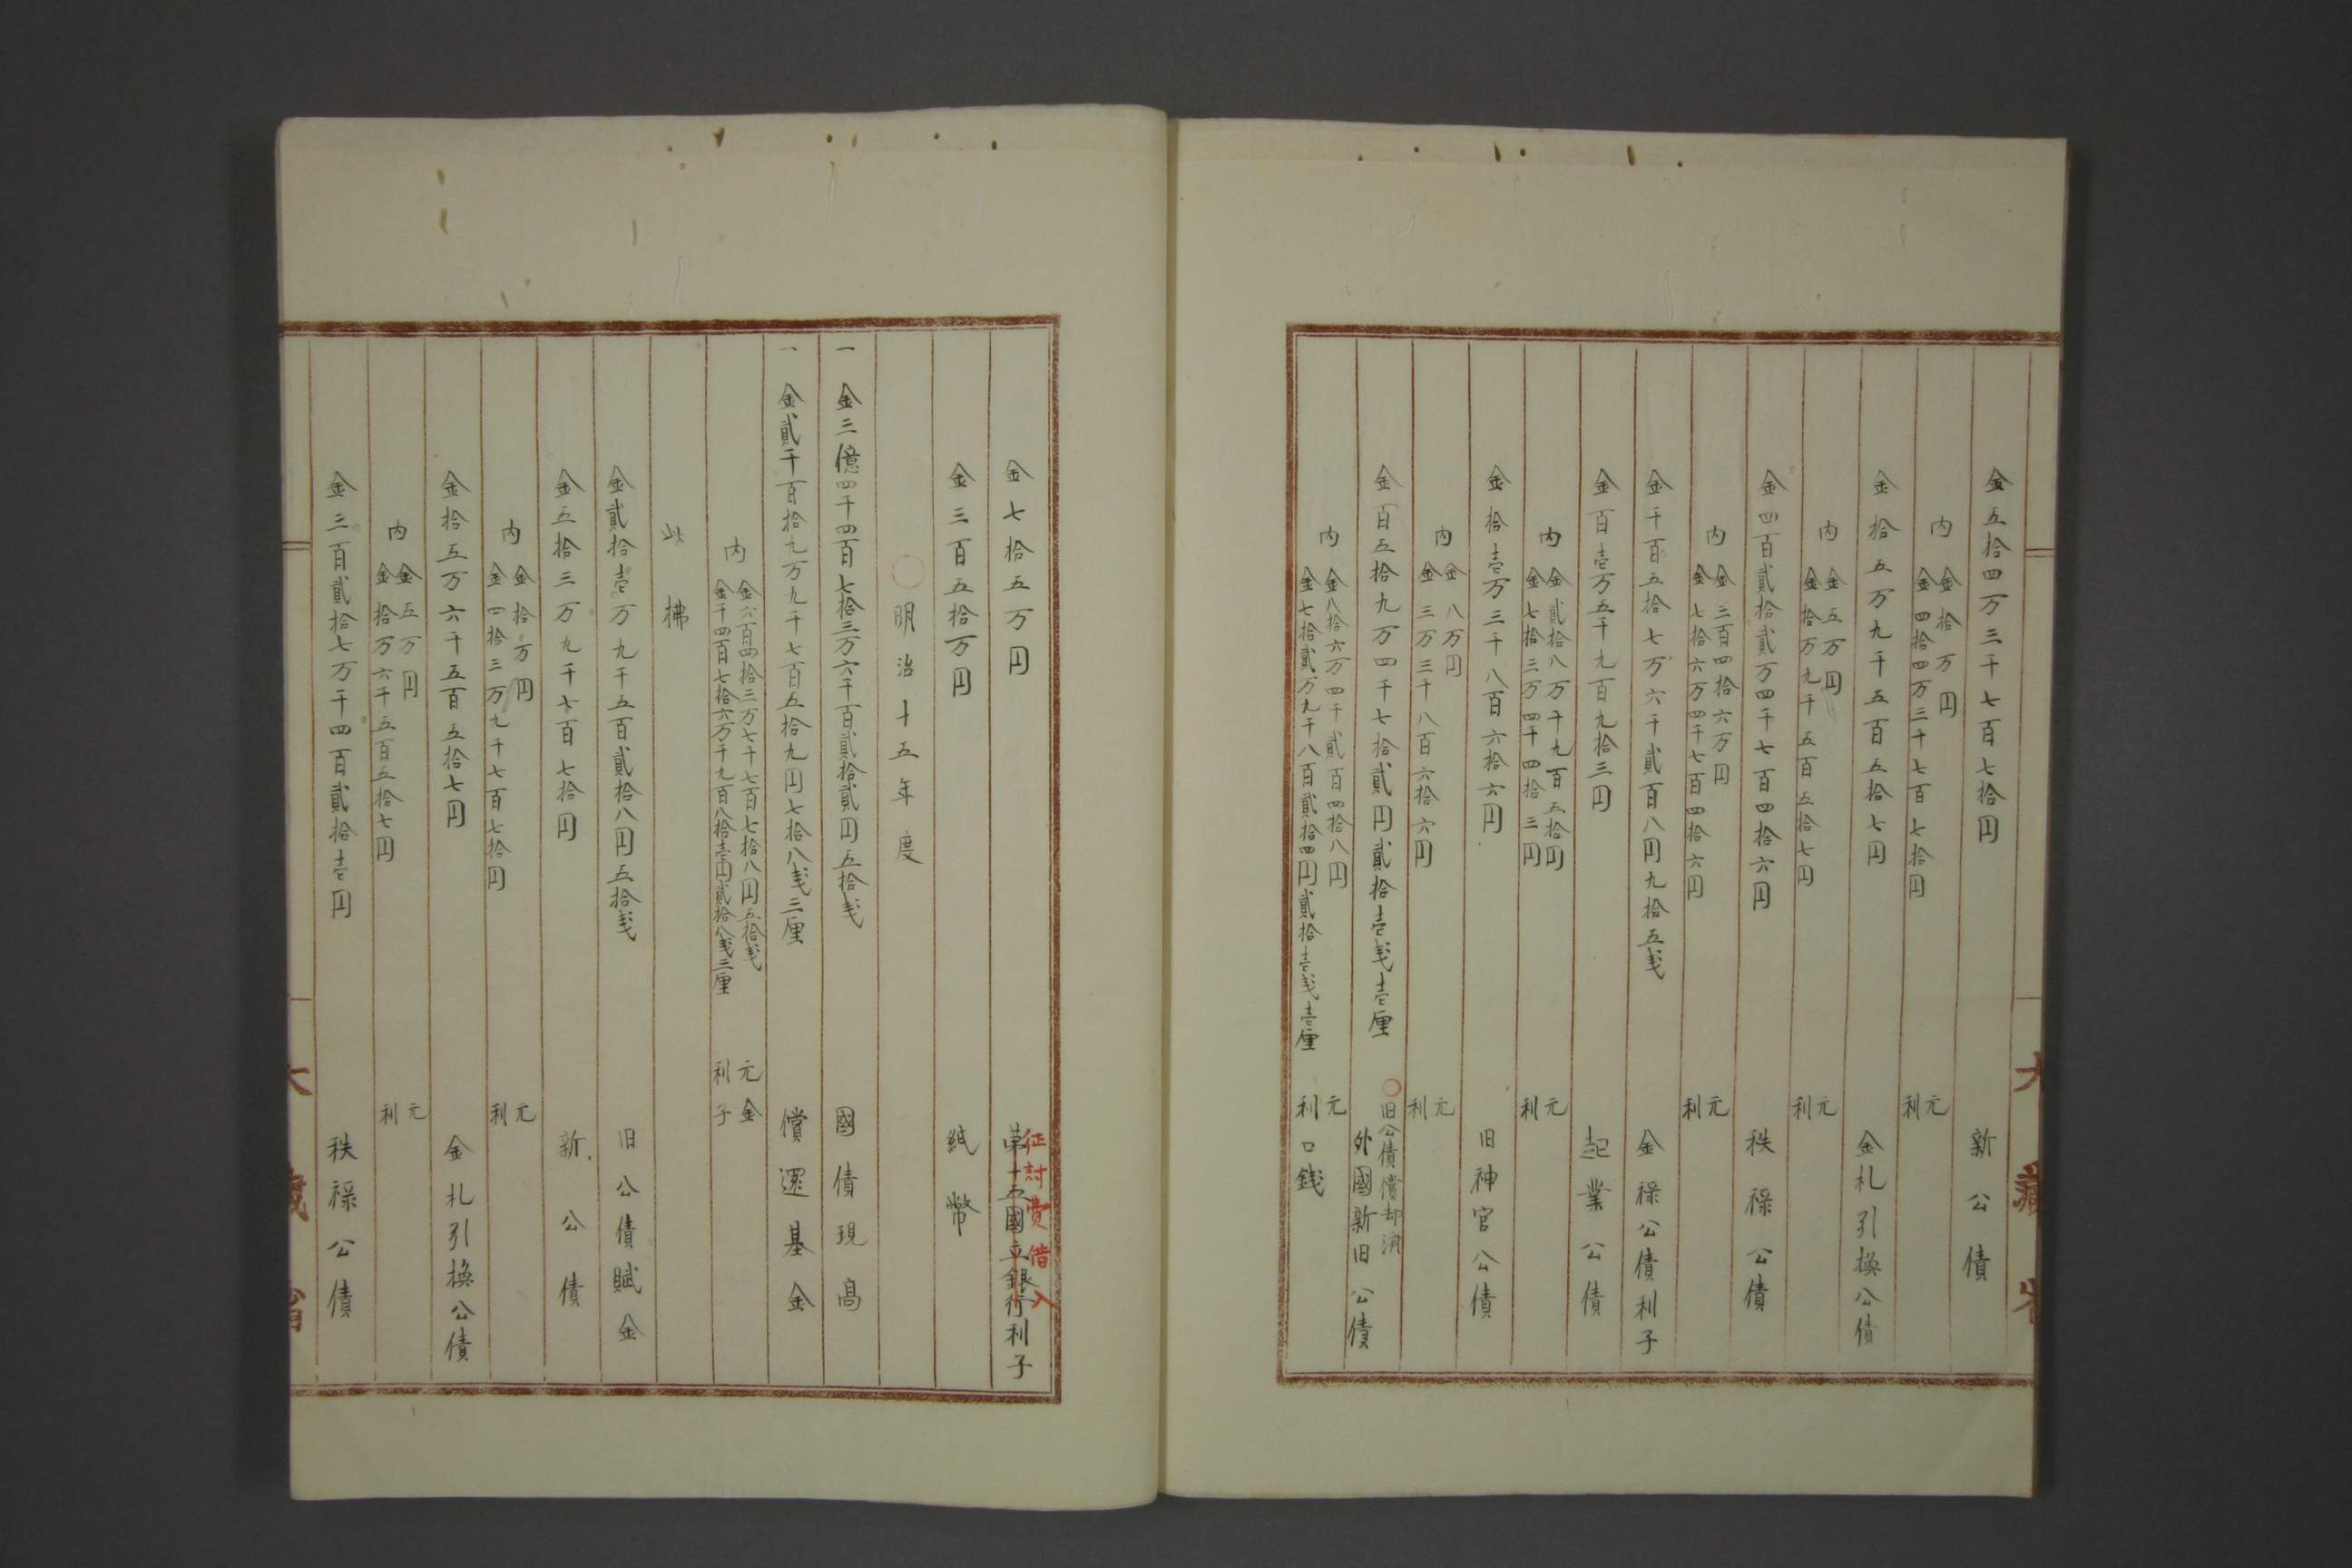 金五拾四万三千七百七拾円 新公債
内 金拾万円 元
金四拾四万三千七百七拾円 利
金拾五万九千五百五拾七円 金札引換公債
内 金五万円 元
金拾万九千五百五拾七円 利
金四百貳拾貳万四千七百四拾六円 秩禄公債
内 金三百四拾六万円 元
金七拾六万四千七百四拾六円 利
金千百五拾七万六千貳百八円九拾五戋 金禄公債利子
金百壱万五千九百九拾三円 起業公債
内 金貳拾八万千九百五拾円 元
金七拾三万四千四拾三円 利
金拾壱万三千八百六拾六円 旧神官公債
内 金八万円 元
金三万三千八百六拾六円 利
○旧公債償却済
金百五拾九万四千七拾貳円貳拾壱戋壱厘 外國新旧公債
内 金八拾六万四千貳百四拾八円 元
金七拾貳万九千八百貳拾四円貳拾壱戋壱厘 利口銭
大藏省
征討費借入
金七拾五万円 第十五國立銀行利子
金三百五拾万円 紙幣
○明治十五年度
一 金三億四千四百七拾三万六千百貳拾貳円五拾戋 國債現高
一 金貳千百拾九万九千七百五拾九円七拾八戋三厘 償還基金
内 金六百四拾三万七千七百七拾八円五拾戋 元金
金千四百七拾六万千九百八拾壱円貳拾八戋三厘 利子
此拂
金貳拾壱万九千五百貳拾八円五拾戋 旧公債賦金
金五拾三万九千七百七拾円 新公債
内 金拾万円 元
金四拾三万九千七百七拾円 利
金拾五万六千五百五拾七円 金札引換公債
内 金五万円 元
金拾万六千五百五拾七円 利
金三百貳拾七万千四百貳拾壱円 秩禄公債
大藏省